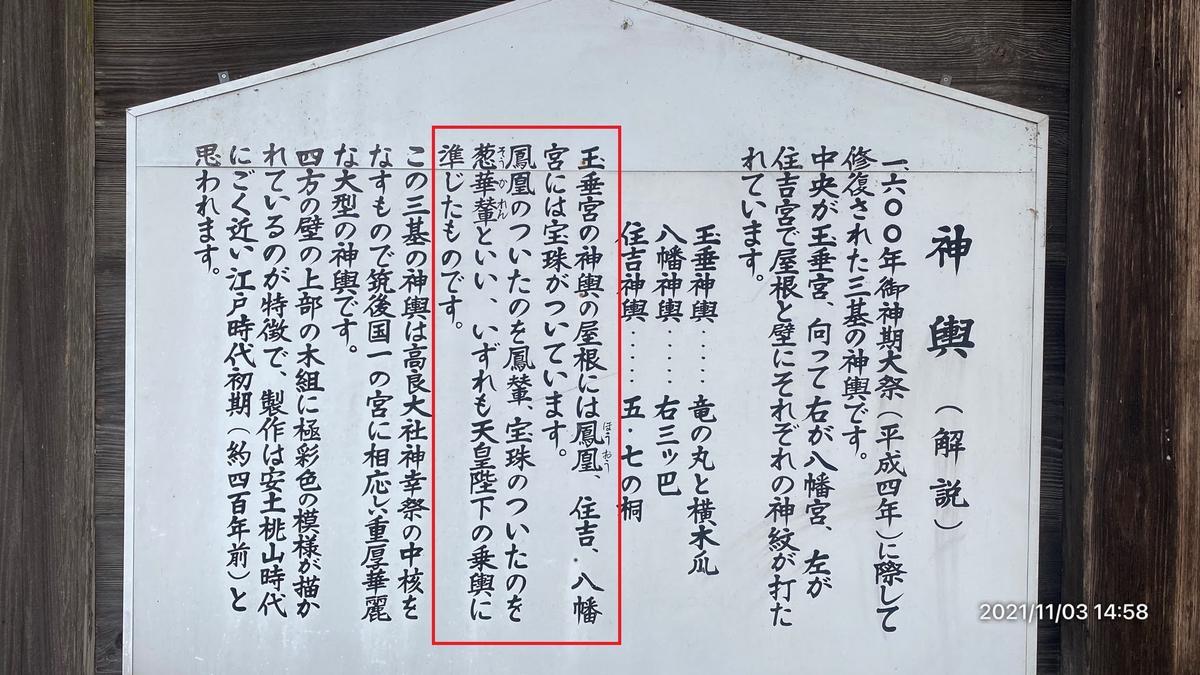 神輿（解説）
一六〇〇年御神期大祭（平成四年）に際して
修復された三基の神輿です。
中央が玉垂宮、向って右が八幡宮、左が
住吉宮で屋根と壁にそれぞれの神紋が打た
れています。
玉垂神輿‥‥竜の丸と横木瓜
八幡神輿‥‥右三ッ巴
住吉神輿‥‥五・七の桐
玉垂宮の神輿の屋根には鳳凰、住吉、八幡
ほうおう
宮には宝珠がついています。
鳳凰のついたのを鳳輦、宝珠のついたのを
葱華輦といい、いずれも天皇陛下の乗輿に
そうかれん
準じたものです。
この三基の神輿は高良大社神幸祭の中核を
なすもので筑後国一の宮に相応い重厚華麗
な大型の神輿です。
四方の壁の上部の木組に極彩色の模様が描か
れているのが特徴で、製作は安土桃山時代
にごく近い江戸時代初期（約四百年前）と
思われます。
2021/11/03 14:58